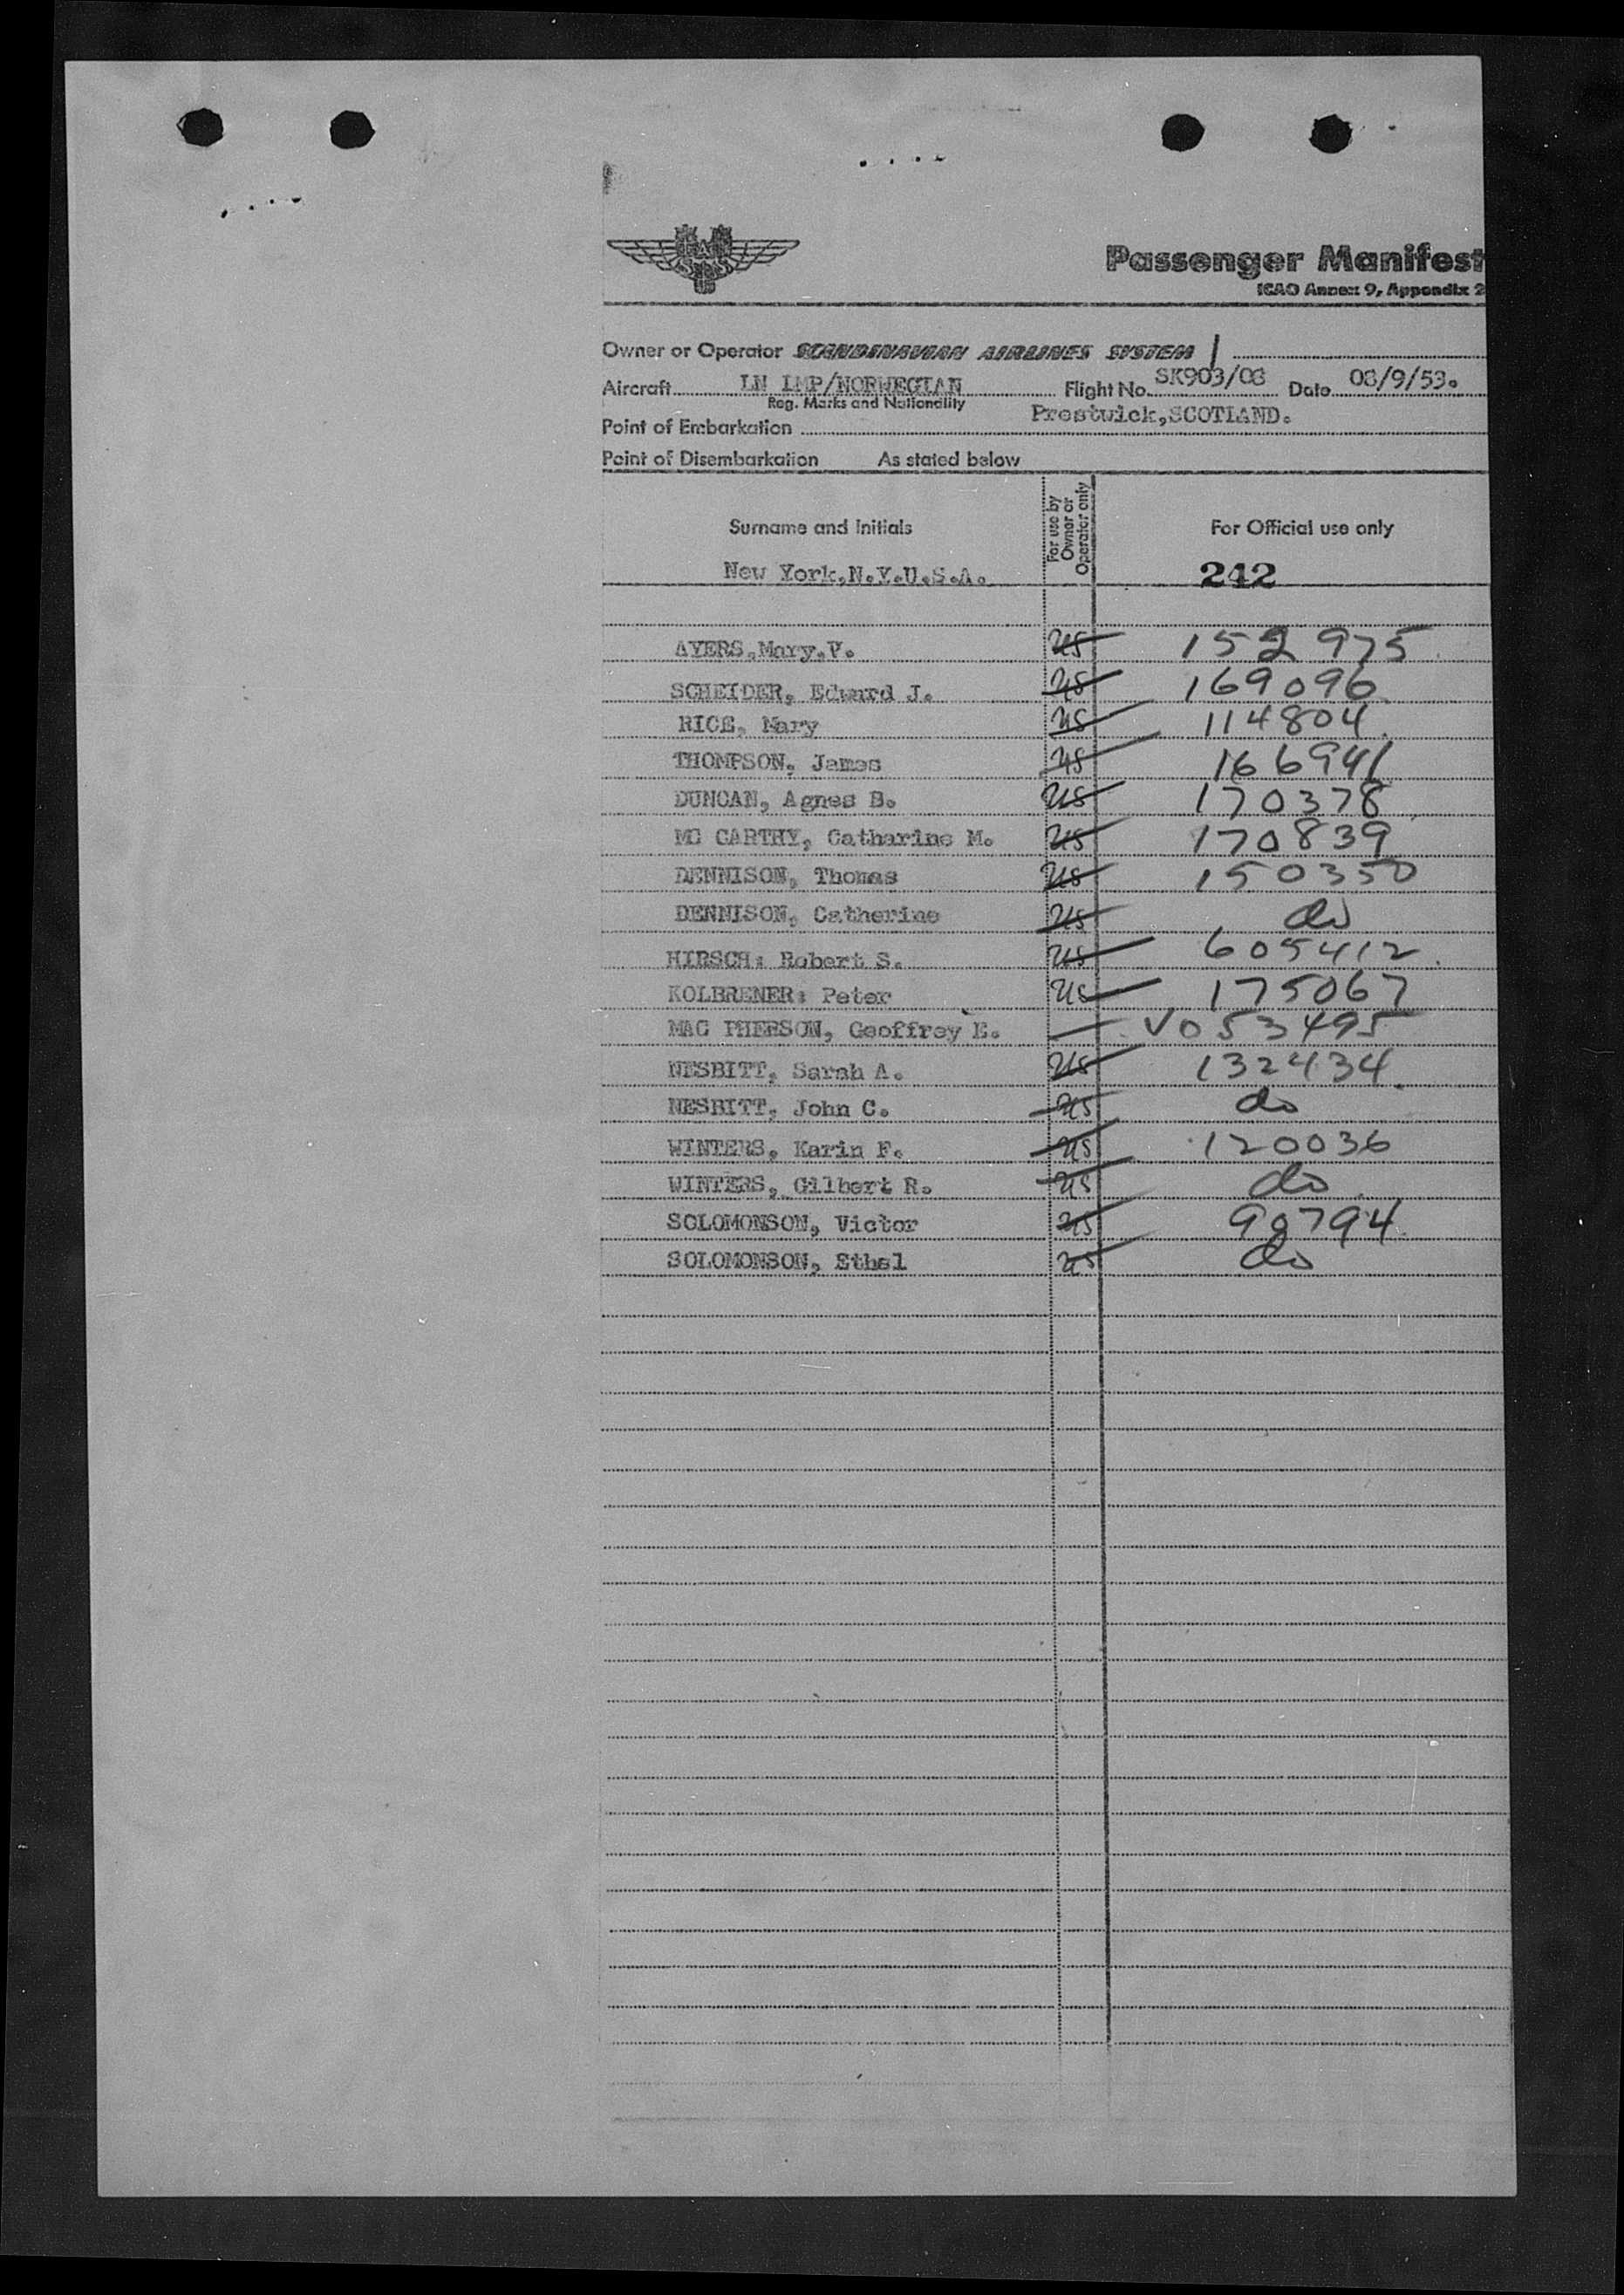 Passenger Manifest
ICAO Annex 9, Appendix 2
Owner or Operator SCANDINAVIAN AIRLINES SYSTEM
Aircraft LN LMP/NORWEGIAN Flight No. SK903/08 Date 08/9/53.
Reg. Marks and Nationality
Point of Embarkation Prestwick,SCOTLAND.
Point of Disembarkation As stated below
Surname and Initials For use by Owner or Operator only For Official use only
New York,N.Y.U.S.A. 242
AYERS,Mary.V. US 152975
SCHEIDER, Edward J. US 169096
RICE, Mary US 114804
THOMPSON, James US 166941
DUNCAN, Agnes B. US 170378
MC CARTHY, Catharine M. US 170839
DENNISON, Thomas US 150350
DENNISON, Catherine US do
HIRSCH: Robert S. US 605412
KOLBRENER: Peter US 175067
MAC PHERSON, Geoffrey E. — V053495
NESBITT, Sarah A. US 132434
NESBITT, John C. US do
WINTERS, Karin F. US 120036
WINTERS, Gilbert R. US do
SOLOMONSON, Victor US 90794
SOLOMONSON, Ethel US do